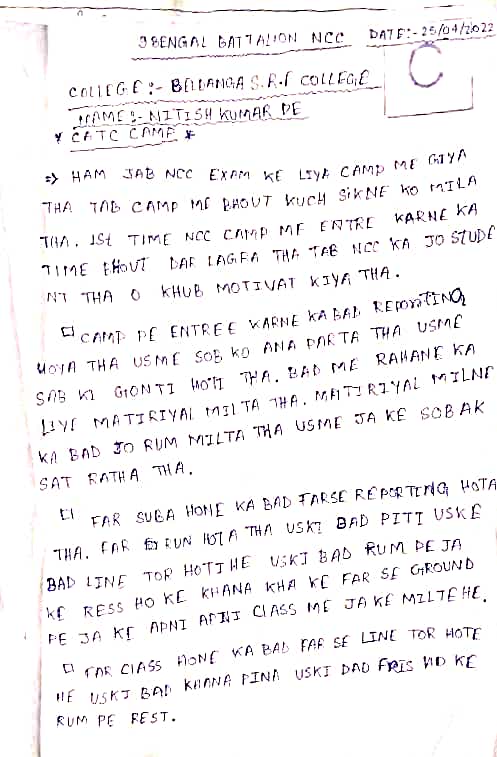 9 BENGAL BATTALION NCC DATE:- 25/04/2022
C
COLLEGE:- BELDANGA S.R.F COLLEGE
NAME:- NITISH KUMAR DE
* CATC CAMP *
=> HAM JAB NCC EXAM KE LIYA CAMP ME GIYA
THA TAB CAMP ME BHOUT KUCH SIKNE KO MILA
THA. 1St TIME NCC CAMP ME ENTRE KARNE KA
TIME BHOUT DAR LAGRA THA TAB NCC KA JO STUDE
NT THA O KHUB MOTIVAT KIYA THA.
□ CAMP PE ENTREE KARNE KA BAD REPORTING
HOYA THA USME SOB KO ANA PARTA THA USME
SAB KI GIONTI HOTI THA. BAD ME RAHANE KA
LIYE MATIRIYAL MILTA THA. MATIRIYAL MILNE
KA BAD JO RUM MILTA THA USME JA KE SOB AK
SAT RATHA THA.
□ FAR SUBA HONE KA BAD FARSE REPORTING HOTA
THA. FAR RUN HOTA THA USKI BAD PITI USKE
BAD LINE TOR HOTI HE USKI BAD RUM PE JA
KE RESS HO KE KHANA KHA KE FAR SE GROUND
PE JA KE APNI APNI CLASS ME JA KE MILTE HE.
□ FAR CLASS HONE KA BAD FAR SE LINE TOR HOTE
HE USKI BAD KHANA PINA USKI BAD FRIS HO KE
RUM PE REST.